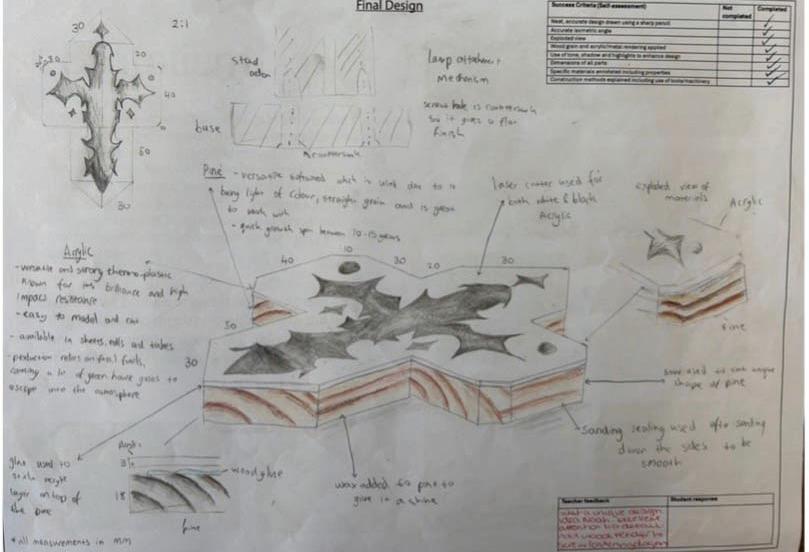 Final Design
Success Criteria (Self-assessment)
Not completed
Completed
Neat, accurate design drawn using a sharp pencil
Accurate isometric angle
Exploded view
Wood grain and acrylic/metal rendering applied
Use of tone, shadow and highlights to enhance design
Dimensions of all parts
Specific materials annotated including properties
Construction methods explained including use of tools/machinery
30
2:1
20
40
50
30
base
lamp attachment
mechanism
screw hole is countersunk
so it gives a flat
finish
countersunk
Pine - versatile softwood which is used due to it
being light of colour, straight grain and is great
to work with
- quick growth span between 10-15 years
laser cutter used for
both white & black
Acrylic
exploded view of
materials
Acrylic
Pine
Acrylic
- versatile and strong thermoplastic
known for its brilliance and high
impact resistance
- easy to model and cut
- available in sheets, rolls and tubes
- production relies on fossil fuels,
causing a lot of green house gases to
escape into the atmosphere
40
10
30
20
30
50
30
saw used to cut unique
shape of pine
Sanding sealing used after sanding
down the sides to be
smooth
wax added to pine to
give it a shine
glue used to
stick acrylic
layer on top of
the pine
3
18
woodglue
pine
* all measurements in mm
Teacher feedback
Student response
what a unique design
attention to detail